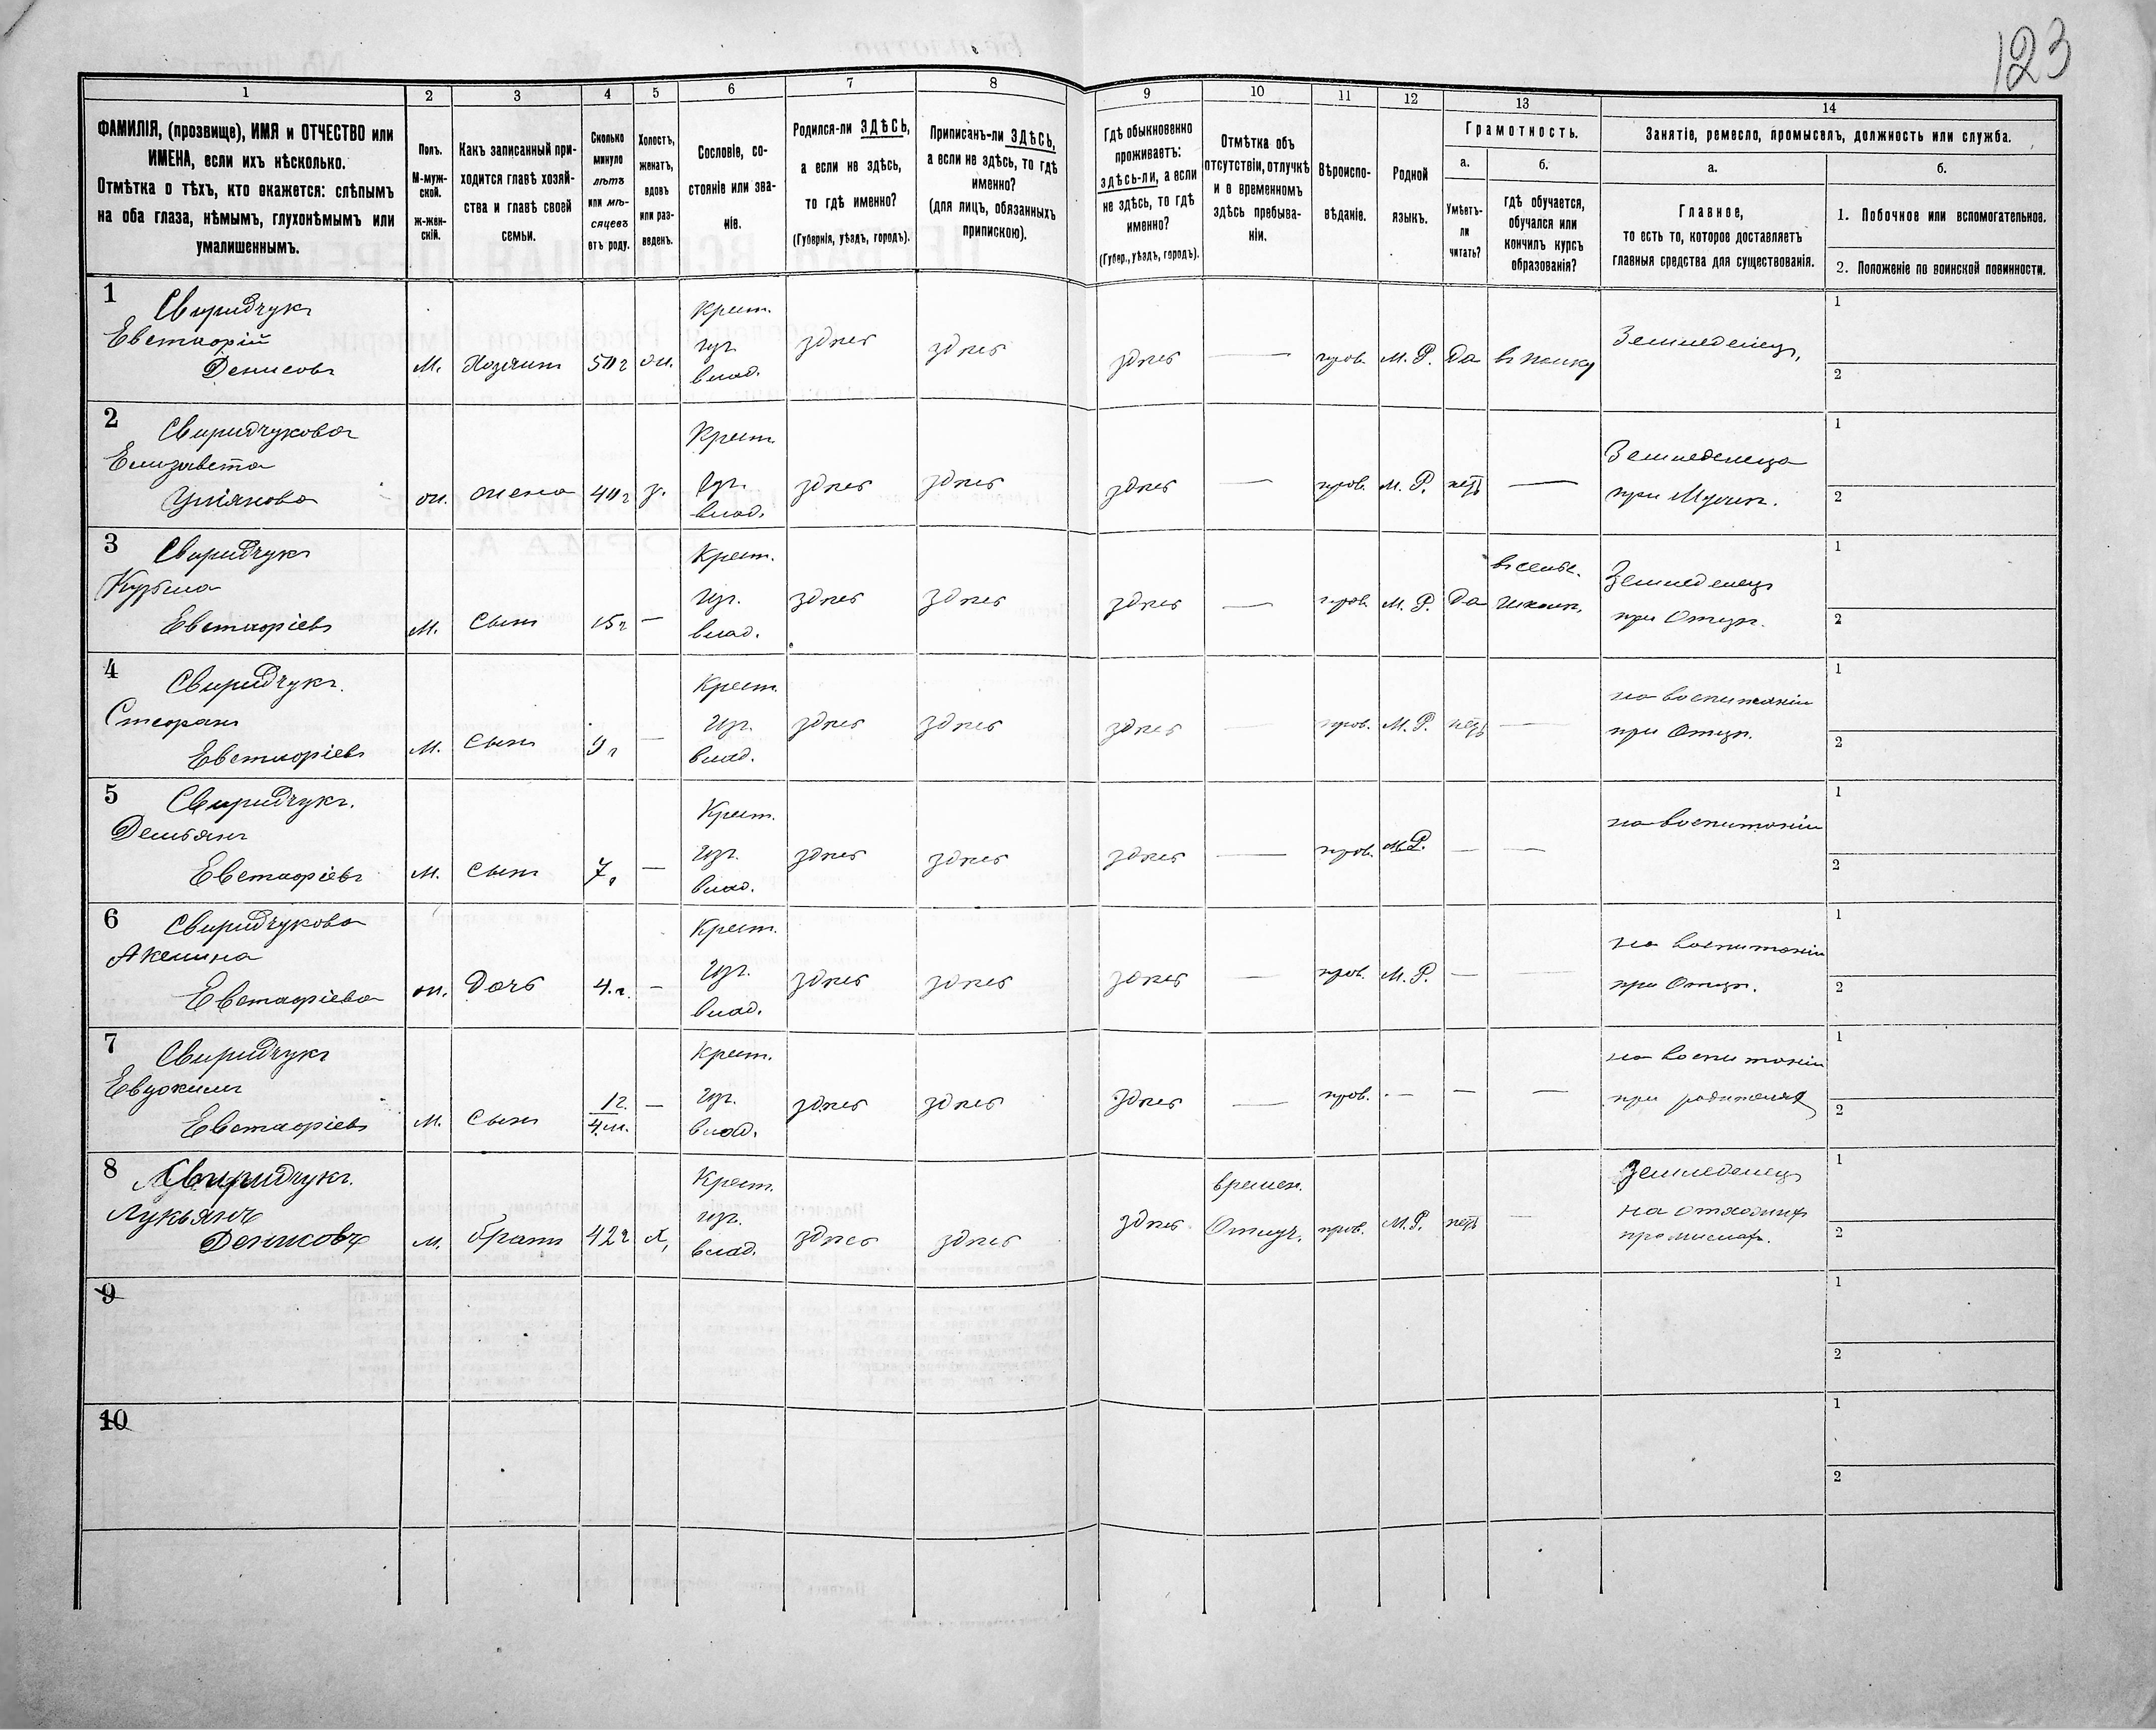 123
1
2
3
4
5
6
7
8
9
10
11
12
13
14
ФАМИЛІЯ, (прозвище), ИМЯ и ОТЧЕСТВО или
ИМЕНА, если ихъ нѣсколько.
Отмѣтка о тѣхъ, кто окажется: слѣпымъ
на оба глаза, нѣмымъ, глухонѣмымъ или
умалишеннымъ.
Полъ.
М-муж-
ской.
ж-жен-
скій.
Какъ записанный при-
ходится главѣ хозяй-
ства и главѣ своей
семьи.
Сколько
минуло
лѣтъ
или мѣ-
сяцевъ
отъ роду.
Холостъ,
женатъ,
вдовъ
или раз-
веденъ.
Сословіе, со-
стояніе или зва-
ніе.
Родился-ли ЗДѢСЬ,
а если не здѣсь,
то гдѣ именно?
(Губернія, уѣздъ, городъ).
Приписанъ-ли ЗДѢСЬ,
а если не здѣсь, то гдѣ
именно?
(для лицъ, обязанныхъ
припискою).
Гдѣ обыкновенно
проживаетъ:
здѣсь-ли, а если
не здѣсь, то гдѣ
именно?
(Губер., уѣздъ, городъ).
Отмѣтка объ
отсутствіи, отлучкѣ
и о временномъ
здѣсь пребыва-
ніи.
Вѣроиспо-
вѣданіе.
Родной
языкъ.
Грамотность.
а.
Умѣетъ-
ли
читать?
б.
гдѣ обучается,
обучался или
кончилъ курсъ
образованія?
Занятіе, ремесло, промыселъ, должность или служба.
а.
Главное,
то есть то, которое доставляетъ
главныя средства для существованія.
б.
1. Побочное или вспомогательное.
2. Положеніе по воинской повинности.
1
Свиридчукъ
Евстафій
Денисовъ
М.
Хозяинъ
50 г
ж.
Крест.
изъ
влад.
здѣсь
здѣсь
здѣсь
—
прав.
М. Р.
Да
въ полку
Земледелецъ,
1
2
2
Свиридчукова
Елизавета
ж.
жена
40 г
з.
Крест.
изъ
влад.
здѣсь
здѣсь
здѣсь
—
прав.
М. Р.
нетъ
—
Земледелица
при Мужѣ.
1
2
3
Свиридчукъ
Кузьма
Евстафіевъ
М.
Сынъ
15 г
—
Крест.
изъ.
влад.
здѣсь
здѣсь
здѣсь
—
прав.
М. Р.
Да
въ сельс.
школѣ.
Земледелецъ
при Отцѣ.
1
2
4
Свиридчукъ.
Стефанъ
Евстафіевъ
М.
Сынъ
9 г
—
Крест.
изъ.
влад.
здѣсь
здѣсь
здѣсь
—
прав.
М. Р.
нетъ
—
на воспитаніи
при Отцѣ.
1
2
5
Свиридчукъ.
Демьянъ
Евстафіевъ
М.
Сынъ
7 г
—
Крест.
изъ.
влад.
здѣсь
здѣсь
здѣсь
—
прав.
М.Р.
—
—
на воспитаніи
1
2
6
Свиридчукова
Акелина
Евстафіева
ж.
Дочь
4. г.
—
Крест.
изъ.
влад.
здѣсь
здѣсь
здѣсь
—
прав.
М. Р.
—
на воспитаніи
при Отцѣ.
1
2
7
Свиридчукъ
Евдокимъ
Евстафіевъ
М.
Сынъ
1 г.
4 м.
—
Крест.
изъ.
влад.
здѣсь
здѣсь
здѣсь
—
прав.
—
—
—
на воспитаніи
при родителяхъ
1
2
8
Свиридчукъ.
Лукьянъ
Денисовъ
М.
братъ
42 г
х,
Крест.
изъ.
влад.
здѣсь
здѣсь
здѣсь
времен.
Отлуч.
прав.
М.Р.
нетъ
—
Земледелецъ
на отхожихъ
промислахъ.
1
2
9
1
2
10
1
2